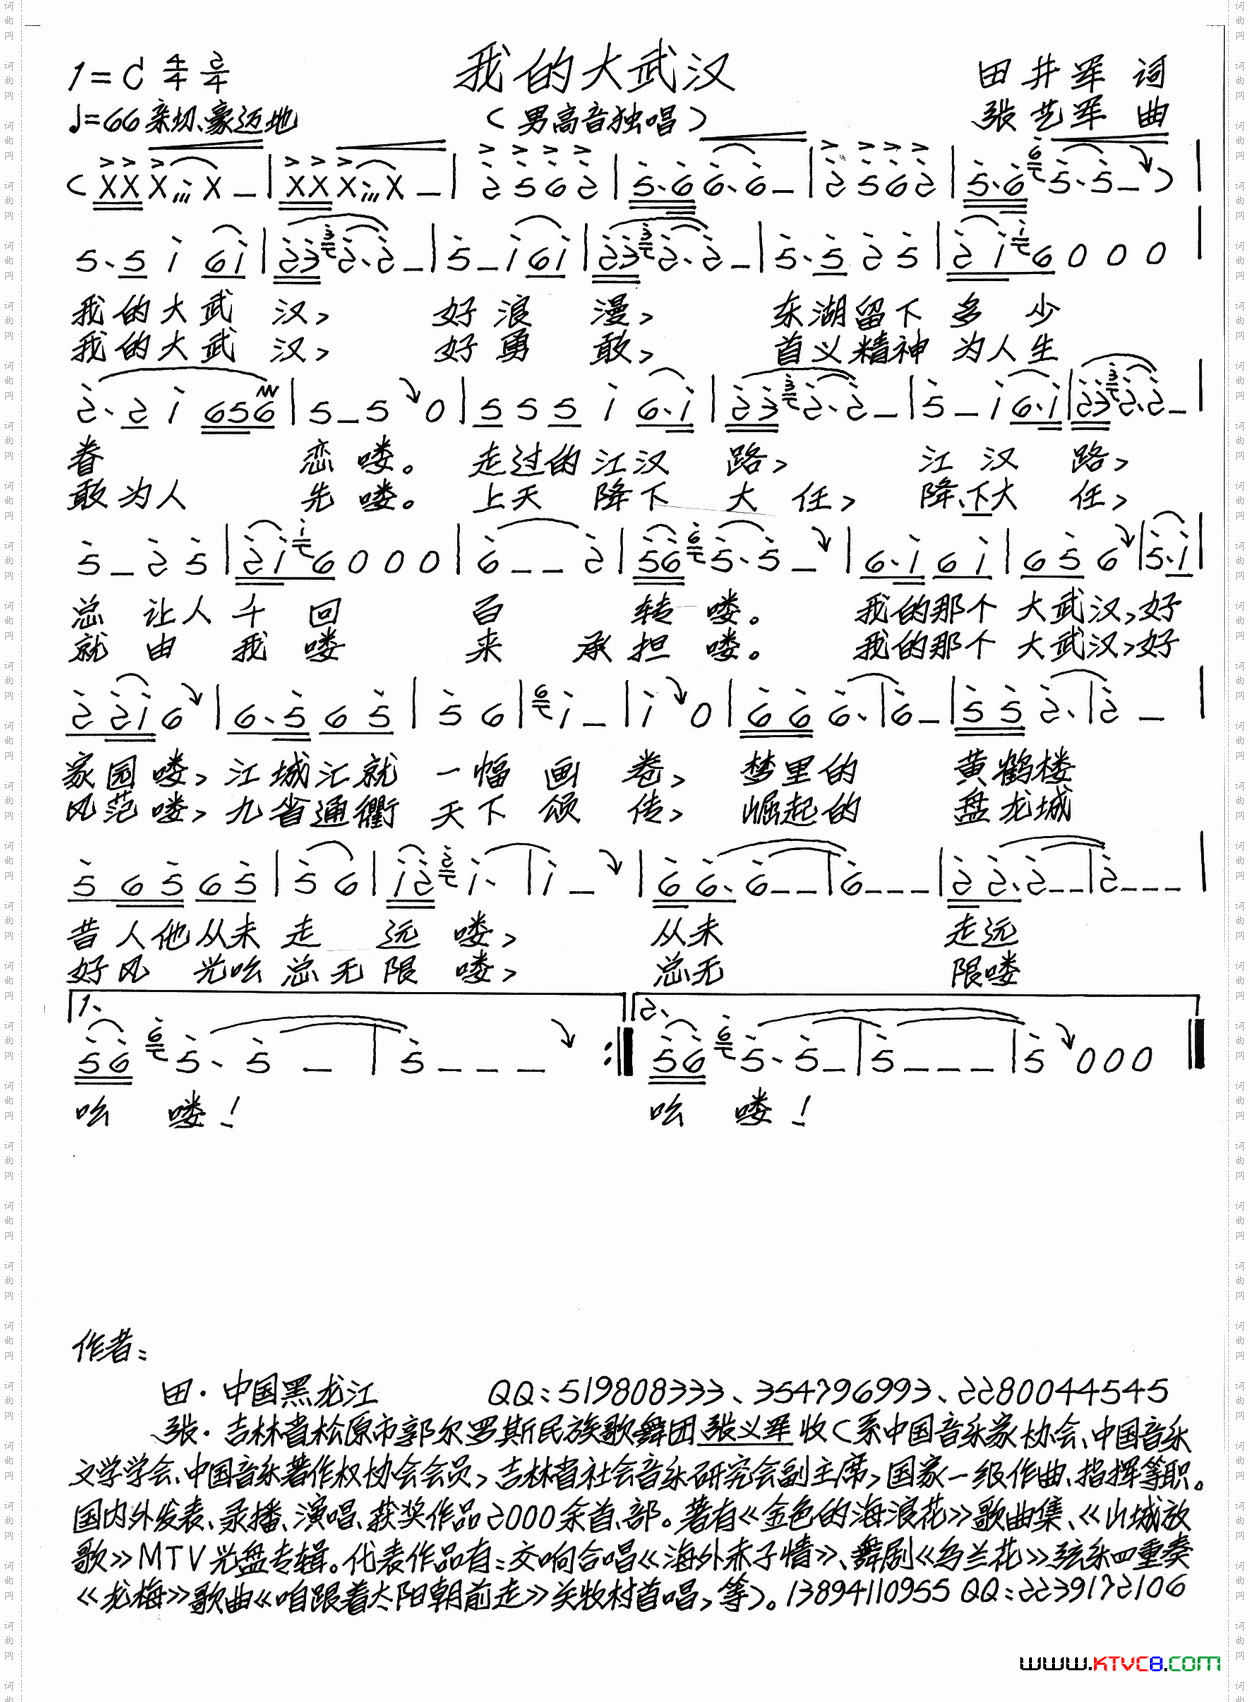 我的大武汉
1=C 4/4 2/4
田井军 词
♩=66 亲切、豪迈地
(男高音独唱)
张艺军 曲
我的大武 汉, 好浪 漫, 东湖留下 多 少
我的大武 汉, 好勇 敢, 首义精神 为人生
眷 恋喽。 走过的江汉 路, 江汉 路,
敢为人 先喽。 上天 降下 大 任, 降、下大 任,
总 让人千 回 百 转 喽。 我的那个 大武汉,好
就 由 我 喽 来 承担 喽。 我的那个 大武汉,好
家园喽, 江城汇就 一幅 画 卷, 梦里的 黄鹤楼
风范喽, 九省通衢 天下 颂 传, 崛起的 盘龙城
昔人他从未 走 远 喽, 从未 走远
好风 光吆总无限 喽, 总无 限喽
1、
2.
吆 喽!
吆 喽!
作者:
田·中国黑龙江 QQ:519808333、354796993、2280044545
张·吉林省松原市郭尔罗斯民族歌舞团张义军收(系中国音乐家协会、中国音乐
文学学会、中国音乐著作权协会会员,吉林省社会音乐研究会副主席,国家一级作曲、指挥等职。
国内外发表、录播、演唱、获奖作品2000余首、部。著有《金色的海浪花》歌曲集、《山城放
歌》MTV光盘专辑。代表作品有:交响合唱《海外赤子情》、舞剧《乌兰花》弦乐四重奏
《龙梅》歌曲《咱跟着太阳朝前走》关牧村首唱,等)。13894110955 QQ:2239172106
www.KTVC8.com